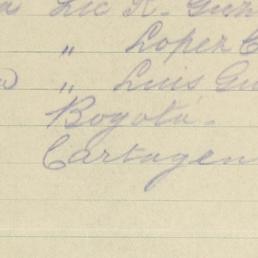 Lic R. Guz
" Lopez C
" Luis Gu
Bogotá.
Cartagen